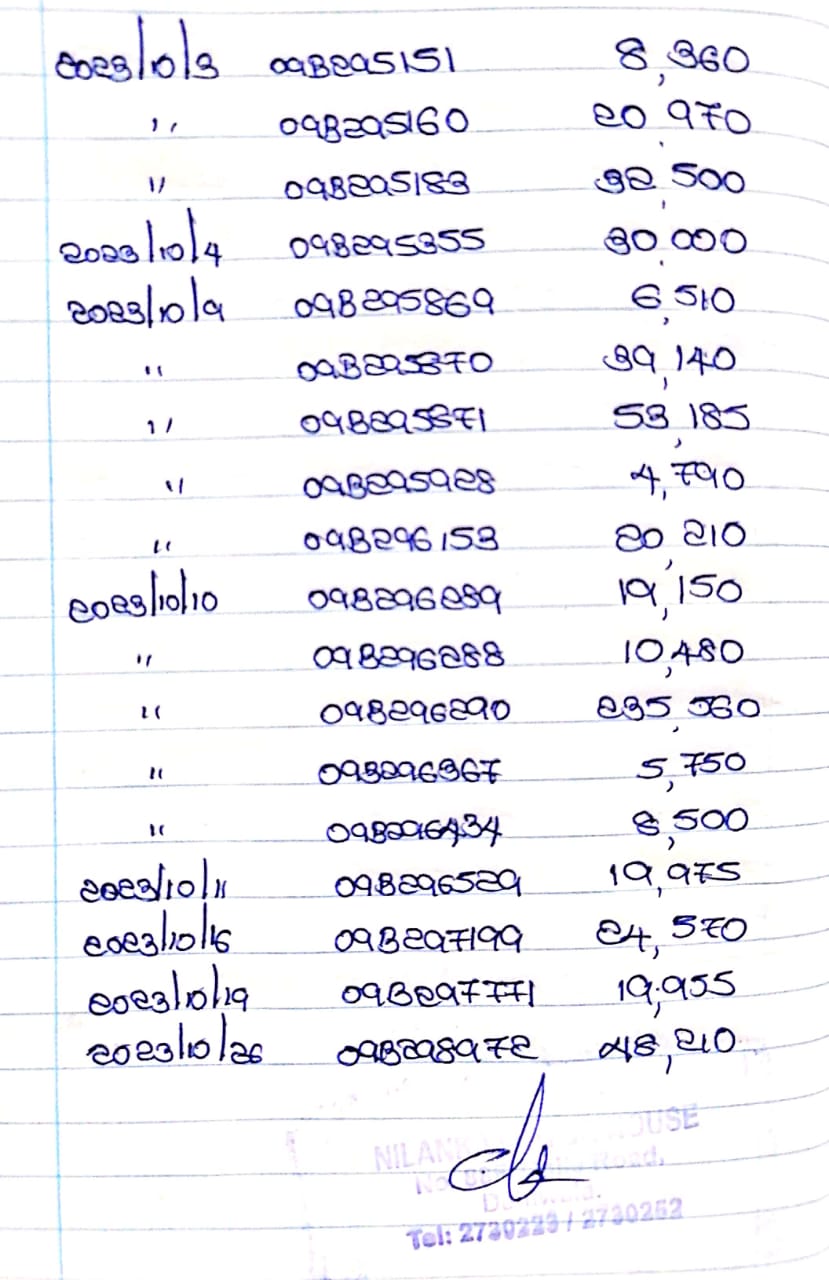 2023/10/3 09B295151 8,360
" 09B295160 20,970
" 09B295183 32,500
2023/10/4 09B295355 30,000
2023/10/9 09B295869 6,510
" 09B295870 39,140
" 09B295871 53,185
" 09B295928 4,790
" 09B296153 20,210
2023/10/10 09B296289 19,150
" 09B296288 10,480
" 09B296290 235,560
" 09B296367 5,750
" 09B296434 8,500
2023/10/11 09B296529 19,975
2023/10/16 09B297199 24,570
2023/10/19 09B297771 19,955
2023/10/26 09B298972 48,210
No Road,
Tel: 2730223 / 2730252